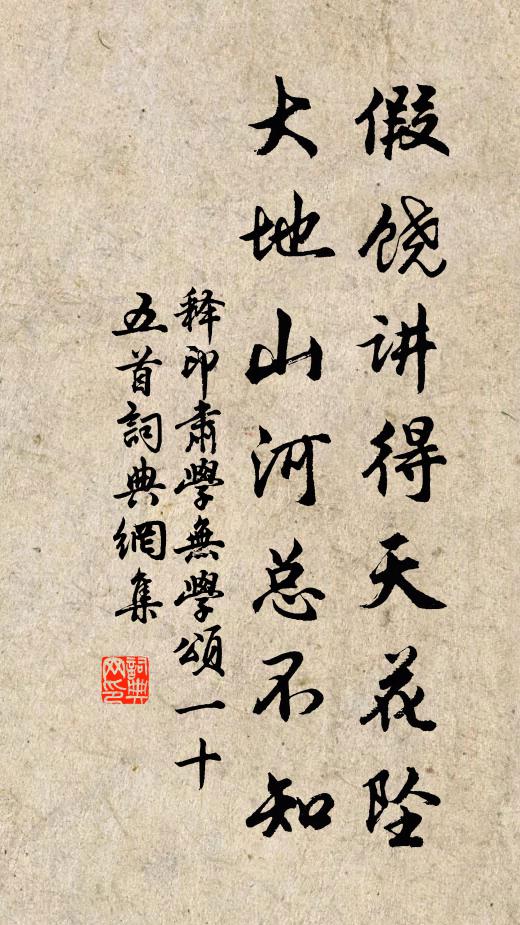 假饶讲得天花坠
大地山河总不知
释印肃學無學頌一十
五首詞典網集
詞典网印